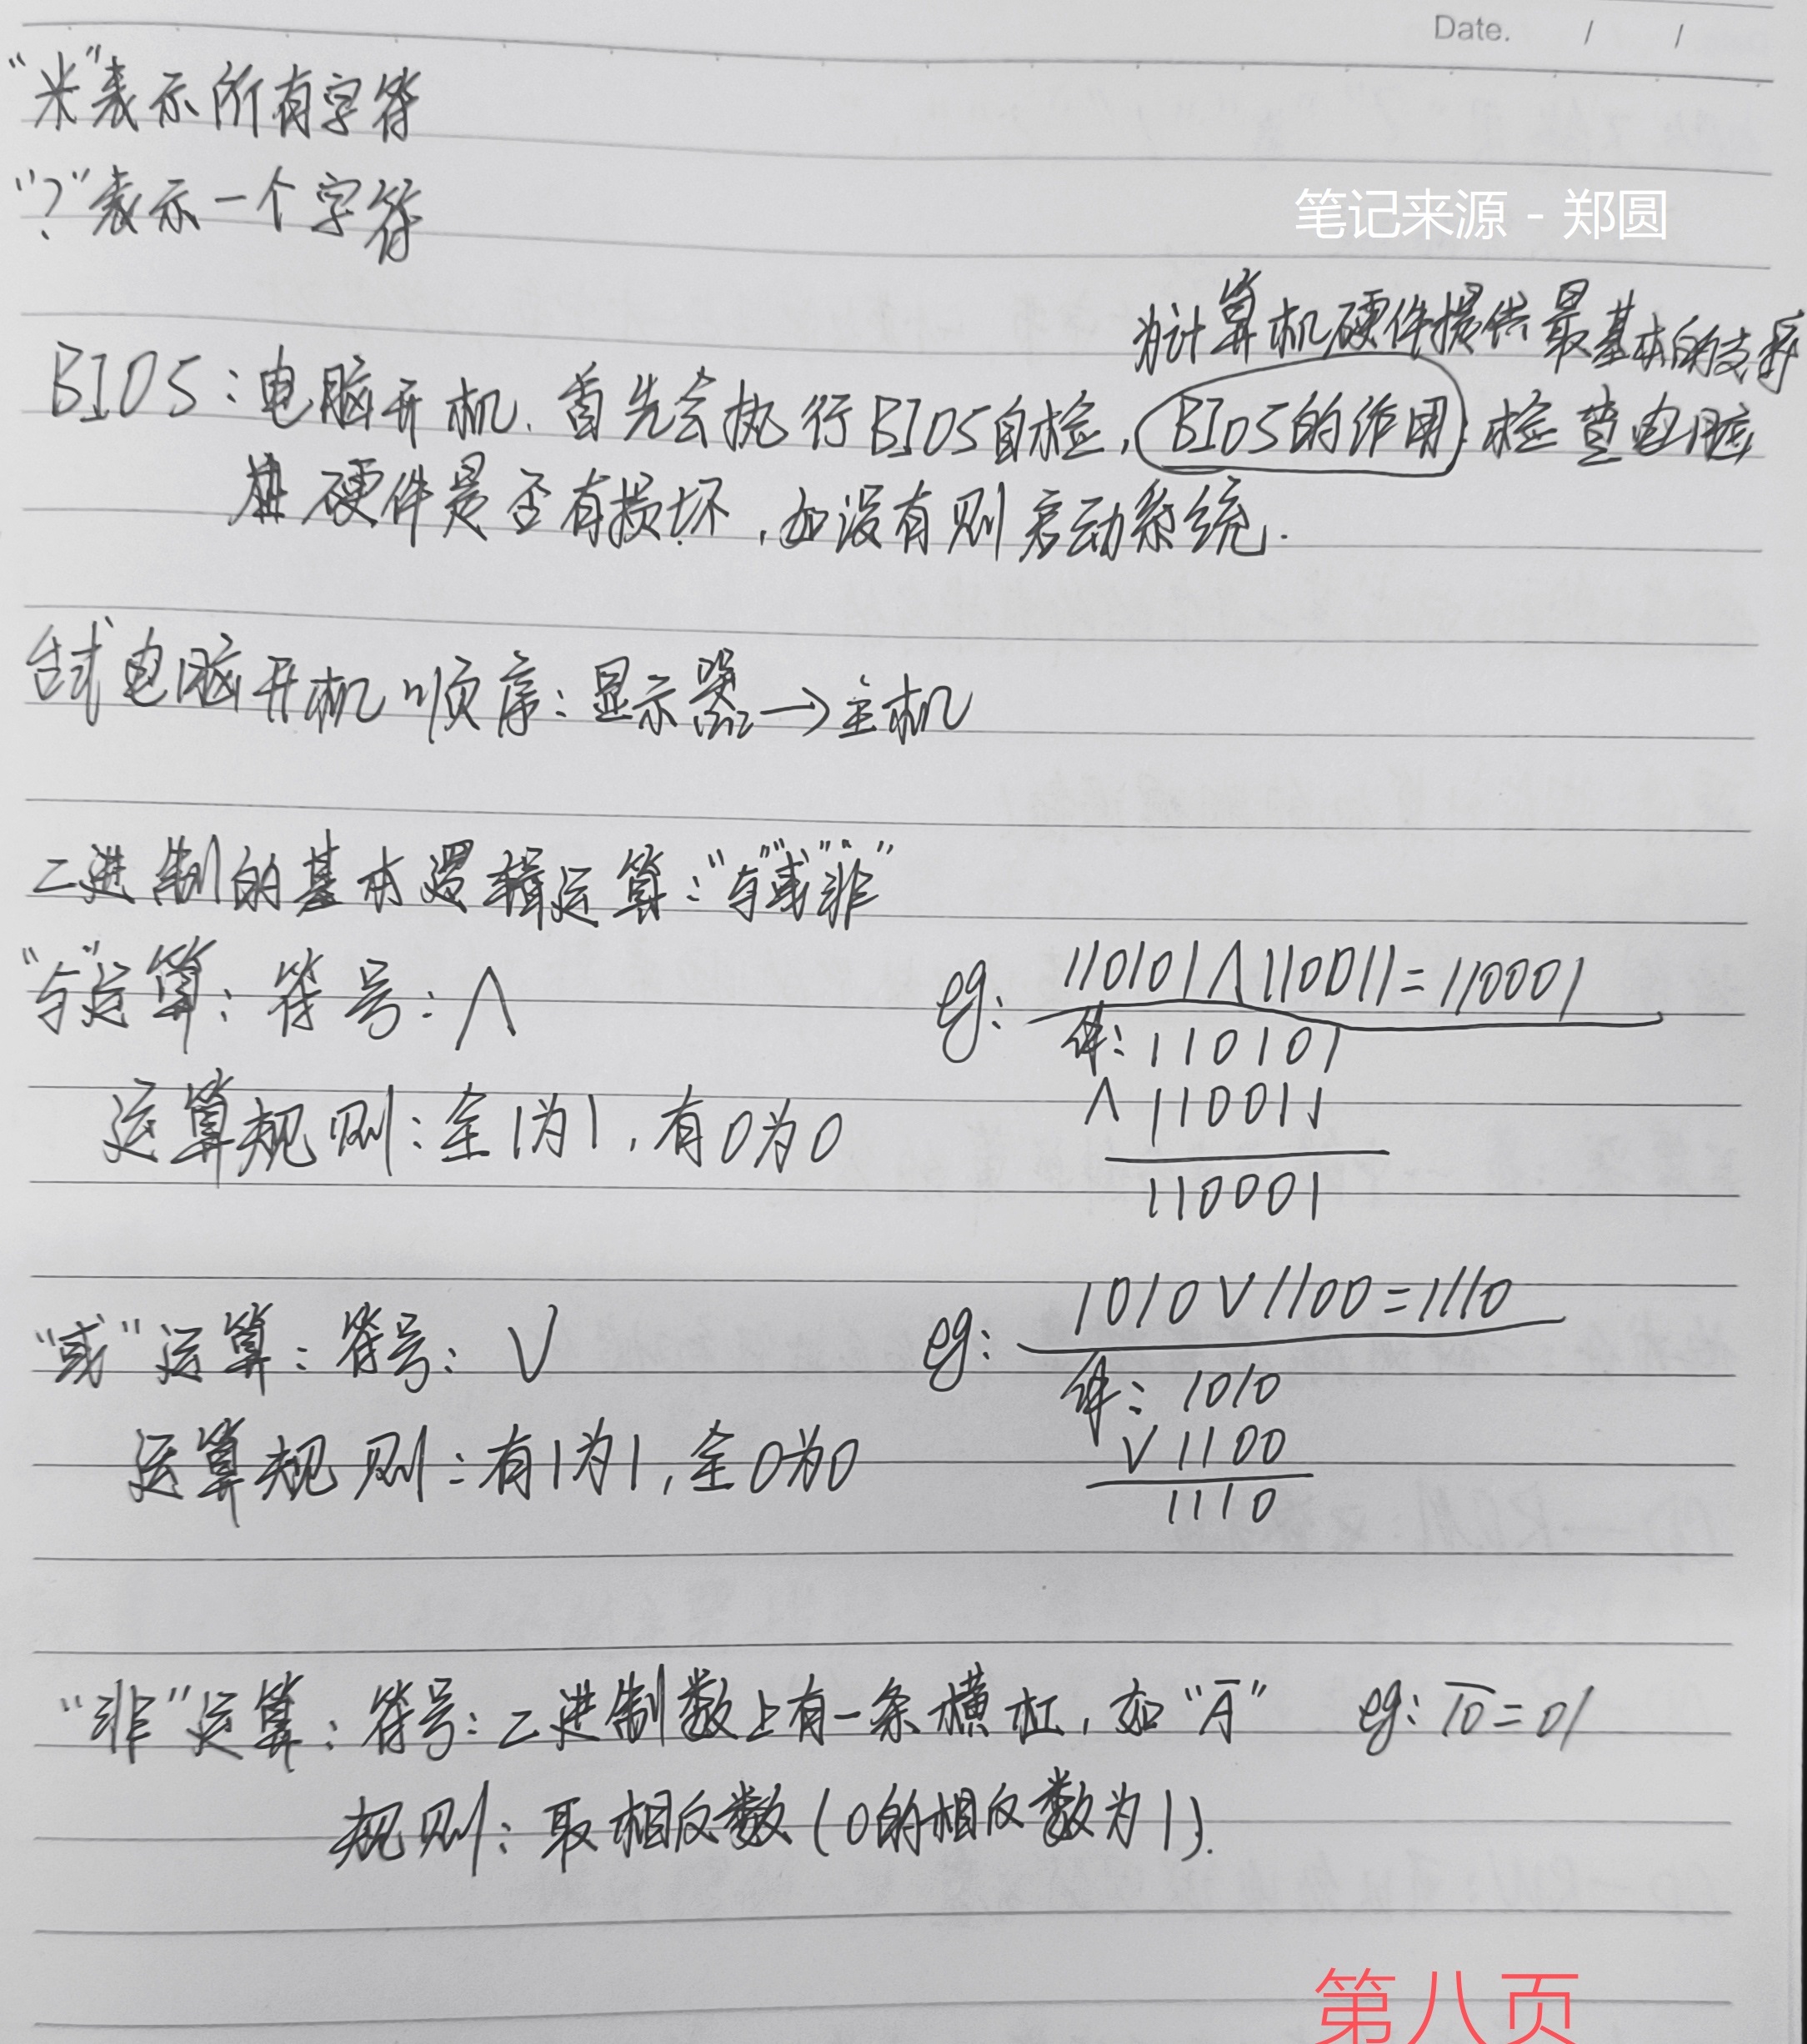 Date. / /
“米”表示所有字符
“?”表示一个字符
笔记来源 - 郑圆
为计算机硬件提供最基本的支持
BIOS：电脑开机，首先会执行BIOS自检，BIOS的作用：检查电脑
硬件是否有损坏，如没有则启动系统.
台式电脑开机顺序：显示器→主机
二进制的基本逻辑运算：“与”“或”“非”
“与”运算：符号：∧
eg：110101∧110011=110001
解：110101
∧ 110011
110001
运算规则：全1为1，有0为0
“或”运算：符号：∨
eg：1010∨1100=1110
解：1010
∨1100
1110
运算规则：有1为1，全0为0
“非”运算：符号：二进制数上有一条横杠，如“Ā” eg：1̅0̅=01
规则：取相反数(0的相反数为1).
第八页